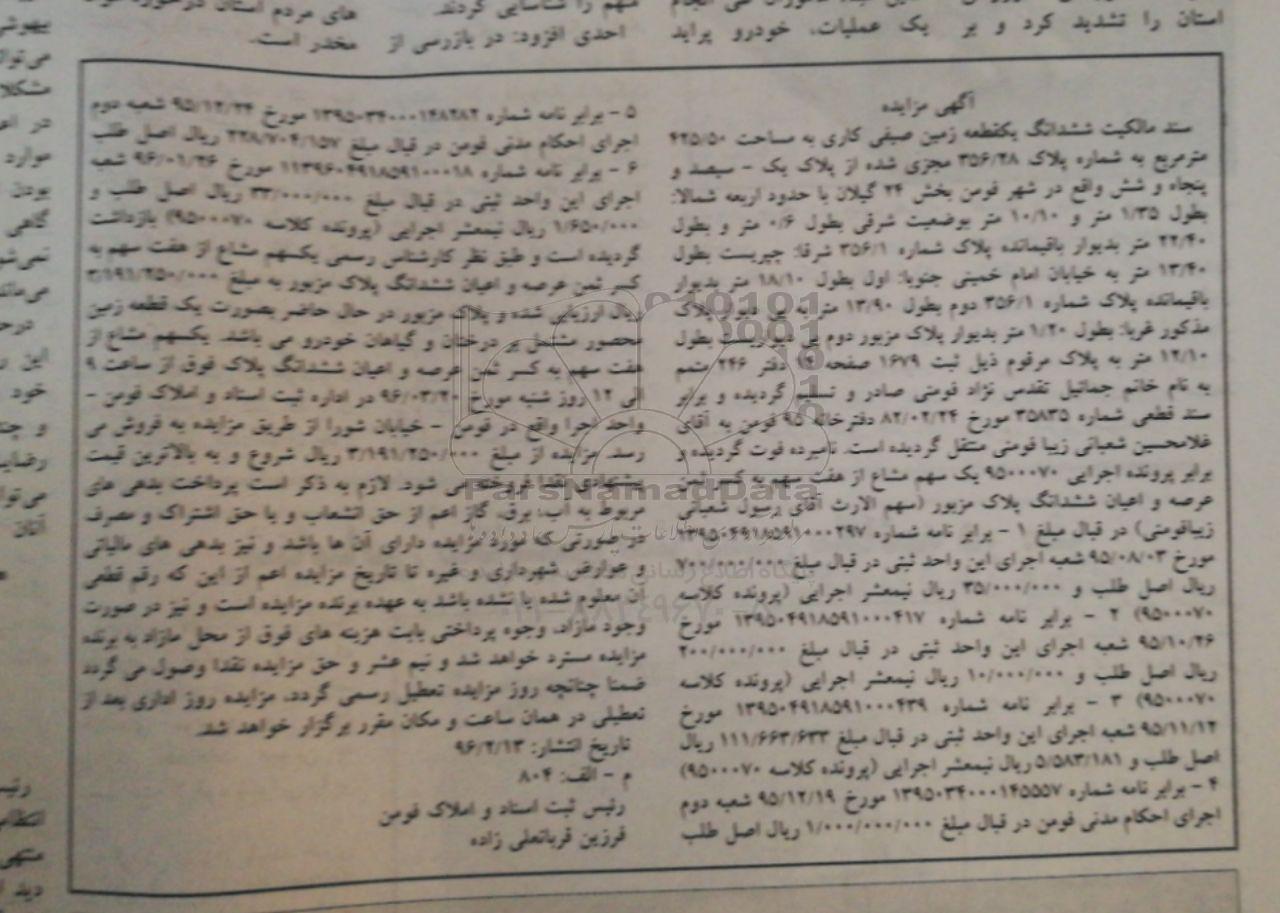 های مردم استان در
مخدر است.
سهم را شناسایی کردند.
احدی افزود: در بازرسی از
یک عملیات، خودرو پراید
استان را تشدید کرد و بر
آگهی مزایده
سند مالکیت ششدانگ یکقطعه زمین صیفی کاری به مساحت ۴۲۵/۵۰
مترمربع به شماره پلاک ۳۵۶/۲۸ مجزی شده از پلاک یک - سیصد و
پنجاه و شش واقع در شهر فومن بخش ۲۴ گیلان با حدود اربعه شمالا:
بطول ۱/۳۵ متر و ۱۰/۱۰ متر بوضعیت شرقی بطول ۰/۶ متر و بطول
۲۲/۴۰ متر بدیوار باقیمانده پلاک شماره ۳۵۶/۱ شرقا: چپریست بطول
۱۳/۴۰ متر به خیابان امام خمینی جنوبا: اول بطول ۱۸/۱۰ متر بدیوار
باقیمانده پلاک شماره ۳۵۶/۱ دوم بطول ۱۳/۹۰ متر به پی دیوار پلاک
مذکور غربا: بطول ۱/۲۰ متر بدیوار پلاک مزبور دوم پی دیواریست بطول
۱۲/۱۰ متر به پلاک مرقوم ذیل ثبت ۱۶۷۹ صفحه ۱۴ دفتر ۲۴۶ متمم
به نام خانم جمائیل تقدس نژاد فومنی صادر و تسلیم گردیده و برابر
سند قطعی شماره ۳۵۸۳۵ مورخ ۸۲/۰۲/۲۴ دفترخانه ۹۵ فومن به آقای
غلامحسین شعبانی زیبا فومنی منتقل گردیده است. نامبرده فوت گردیده و
برابر پرونده اجرایی ۹۵۰۰۰۷۰ یک سهم مشاع از هفت سهم به کسر ثمن
عرصه و اعیان ششدانگ پلاک مزبور (سهم الارث آقای رسول شعبانی
زیبافومنی) در قبال مبلغ ۱ - برابر نامه شماره ۱۳۹۵۰۴۹۱۸۵۹۱۰۰۰۲۹۷
مورخ ۹۵/۰۸/۰۳ شعبه اجرای این واحد ثبتی در قبال مبلغ ۷۰۰/۰۰۰/۰۰۰
ریال اصل طلب و ۳۵/۰۰۰/۰۰۰ ریال نیمعشر اجرایی (پرونده کلاسه
۹۵۰۰۰۷۰) ۲ - برابر نامه شماره ۱۳۹۵۰۴۹۱۸۵۹۱۰۰۰۴۱۷ مورخ
۹۵/۱۰/۲۶ شعبه اجرای این واحد ثبتی در قبال مبلغ ۲۰۰/۰۰۰/۰۰۰
ریال اصل طلب و ۱۰/۰۰۰/۰۰۰ ریال نیمعشر اجرایی (پرونده کلاسه
۹۵۰۰۰۷۰) ۳ - برابر نامه شماره ۱۳۹۵۰۴۹۱۸۵۹۱۰۰۰۴۳۹ مورخ
۹۵/۱۱/۱۲ شعبه اجرای این واحد ثبتی در قبال مبلغ ۱۱۱/۶۶۳/۶۳۳ ریال
اصل طلب و ۵/۵۸۳/۱۸۱ ریال نیمعشر اجرایی (پرونده کلاسه ۹۵۰۰۰۷۰)
۴ - برابر نامه شماره ۱۳۹۵۰۳۴۰۰۰۱۴۵۵۵۷ مورخ ۹۵/۱۲/۱۹ شعبه دوم
اجرای احکام مدنی فومن در قبال مبلغ ۱/۰۰۰/۰۰۰/۰۰۰ ریال اصل طلب
۵ - برابر نامه شماره ۱۳۹۵۰۳۴۰۰۰۱۴۸۲۸۲ مورخ ۹۵/۱۲/۲۴ شعبه دوم
اجرای احکام مدنی فومن در قبال مبلغ ۲۲۸/۷۰۴/۱۵۷ ریال اصل طلب
۶ - برابر نامه شماره ۱۱۳۹۶۰۴۹۱۸۵۹۱۰۰۰۱۸ مورخ ۹۶/۰۱/۲۶ شعبه
اجرای این واحد ثبتی در قبال مبلغ ۳۳/۰۰۰/۰۰۰ ریال اصل طلب و
۱/۶۵۰/۰۰۰ ریال نیمعشر اجرایی (پرونده کلاسه ۹۵۰۰۰۷۰) بازداشت
گردیده است و طبق نظر کارشناس رسمی یکسهم مشاع از هفت سهم به
کسر ثمن عرصه و اعیان ششدانگ پلاک مزبور به مبلغ ۳/۱۹۱/۲۵۰/۰۰۰
ریال ارزیابی شده و پلاک مزبور در حال حاضر بصورت یک قطعه زمین
محصور مشتمل بر درختان و گیاهان خودرو می باشد. یکسهم مشاع از
هفت سهم به کسر ثمن عرصه و اعیان ششدانگ پلاک فوق از ساعت ۹
الی ۱۲ روز شنبه مورخ ۹۶/۰۳/۲۰ در اداره ثبت اسناد و املاک فومن -
واحد اجرا واقع در فومن - خیابان شورا از طریق مزایده به فروش می
رسد. مزایده از مبلغ ۳/۱۹۱/۲۵۰/۰۰۰ ریال شروع و به بالاترین قیمت
پیشنهادی نقدا فروخته می شود. لازم به ذکر است پرداخت بدهی های
مربوط به آب، برق، گاز اعم از حق انشعاب و یا حق اشتراک و مصرف
در صورتی که مورد مزایده دارای آن ها باشد و نیز بدهی های مالیاتی
و عوارض شهرداری و غیره تا تاریخ مزایده اعم از این که رقم قطعی
آن معلوم شده یا نشده باشد به عهده برنده مزایده است و نیز در صورت
وجود مازاد، وجوه پرداختی بابت هزینه های فوق از محل مازاد به برنده
مزایده مسترد خواهد شد و نیم عشر و حق مزایده نقدا وصول می گردد
ضمنا چنانچه روز مزایده تعطیل رسمی گردد، مزایده روز اداری بعد از
تعطیلی در همان ساعت و مکان مقرر برگزار خواهد شد.
تاریخ انتشار: ۹۶/۲/۱۳
م - الف: ۸۰۴
رئیس ثبت اسناد و املاک فومن
فرزین قربانعلی زاده
ParsNamadData